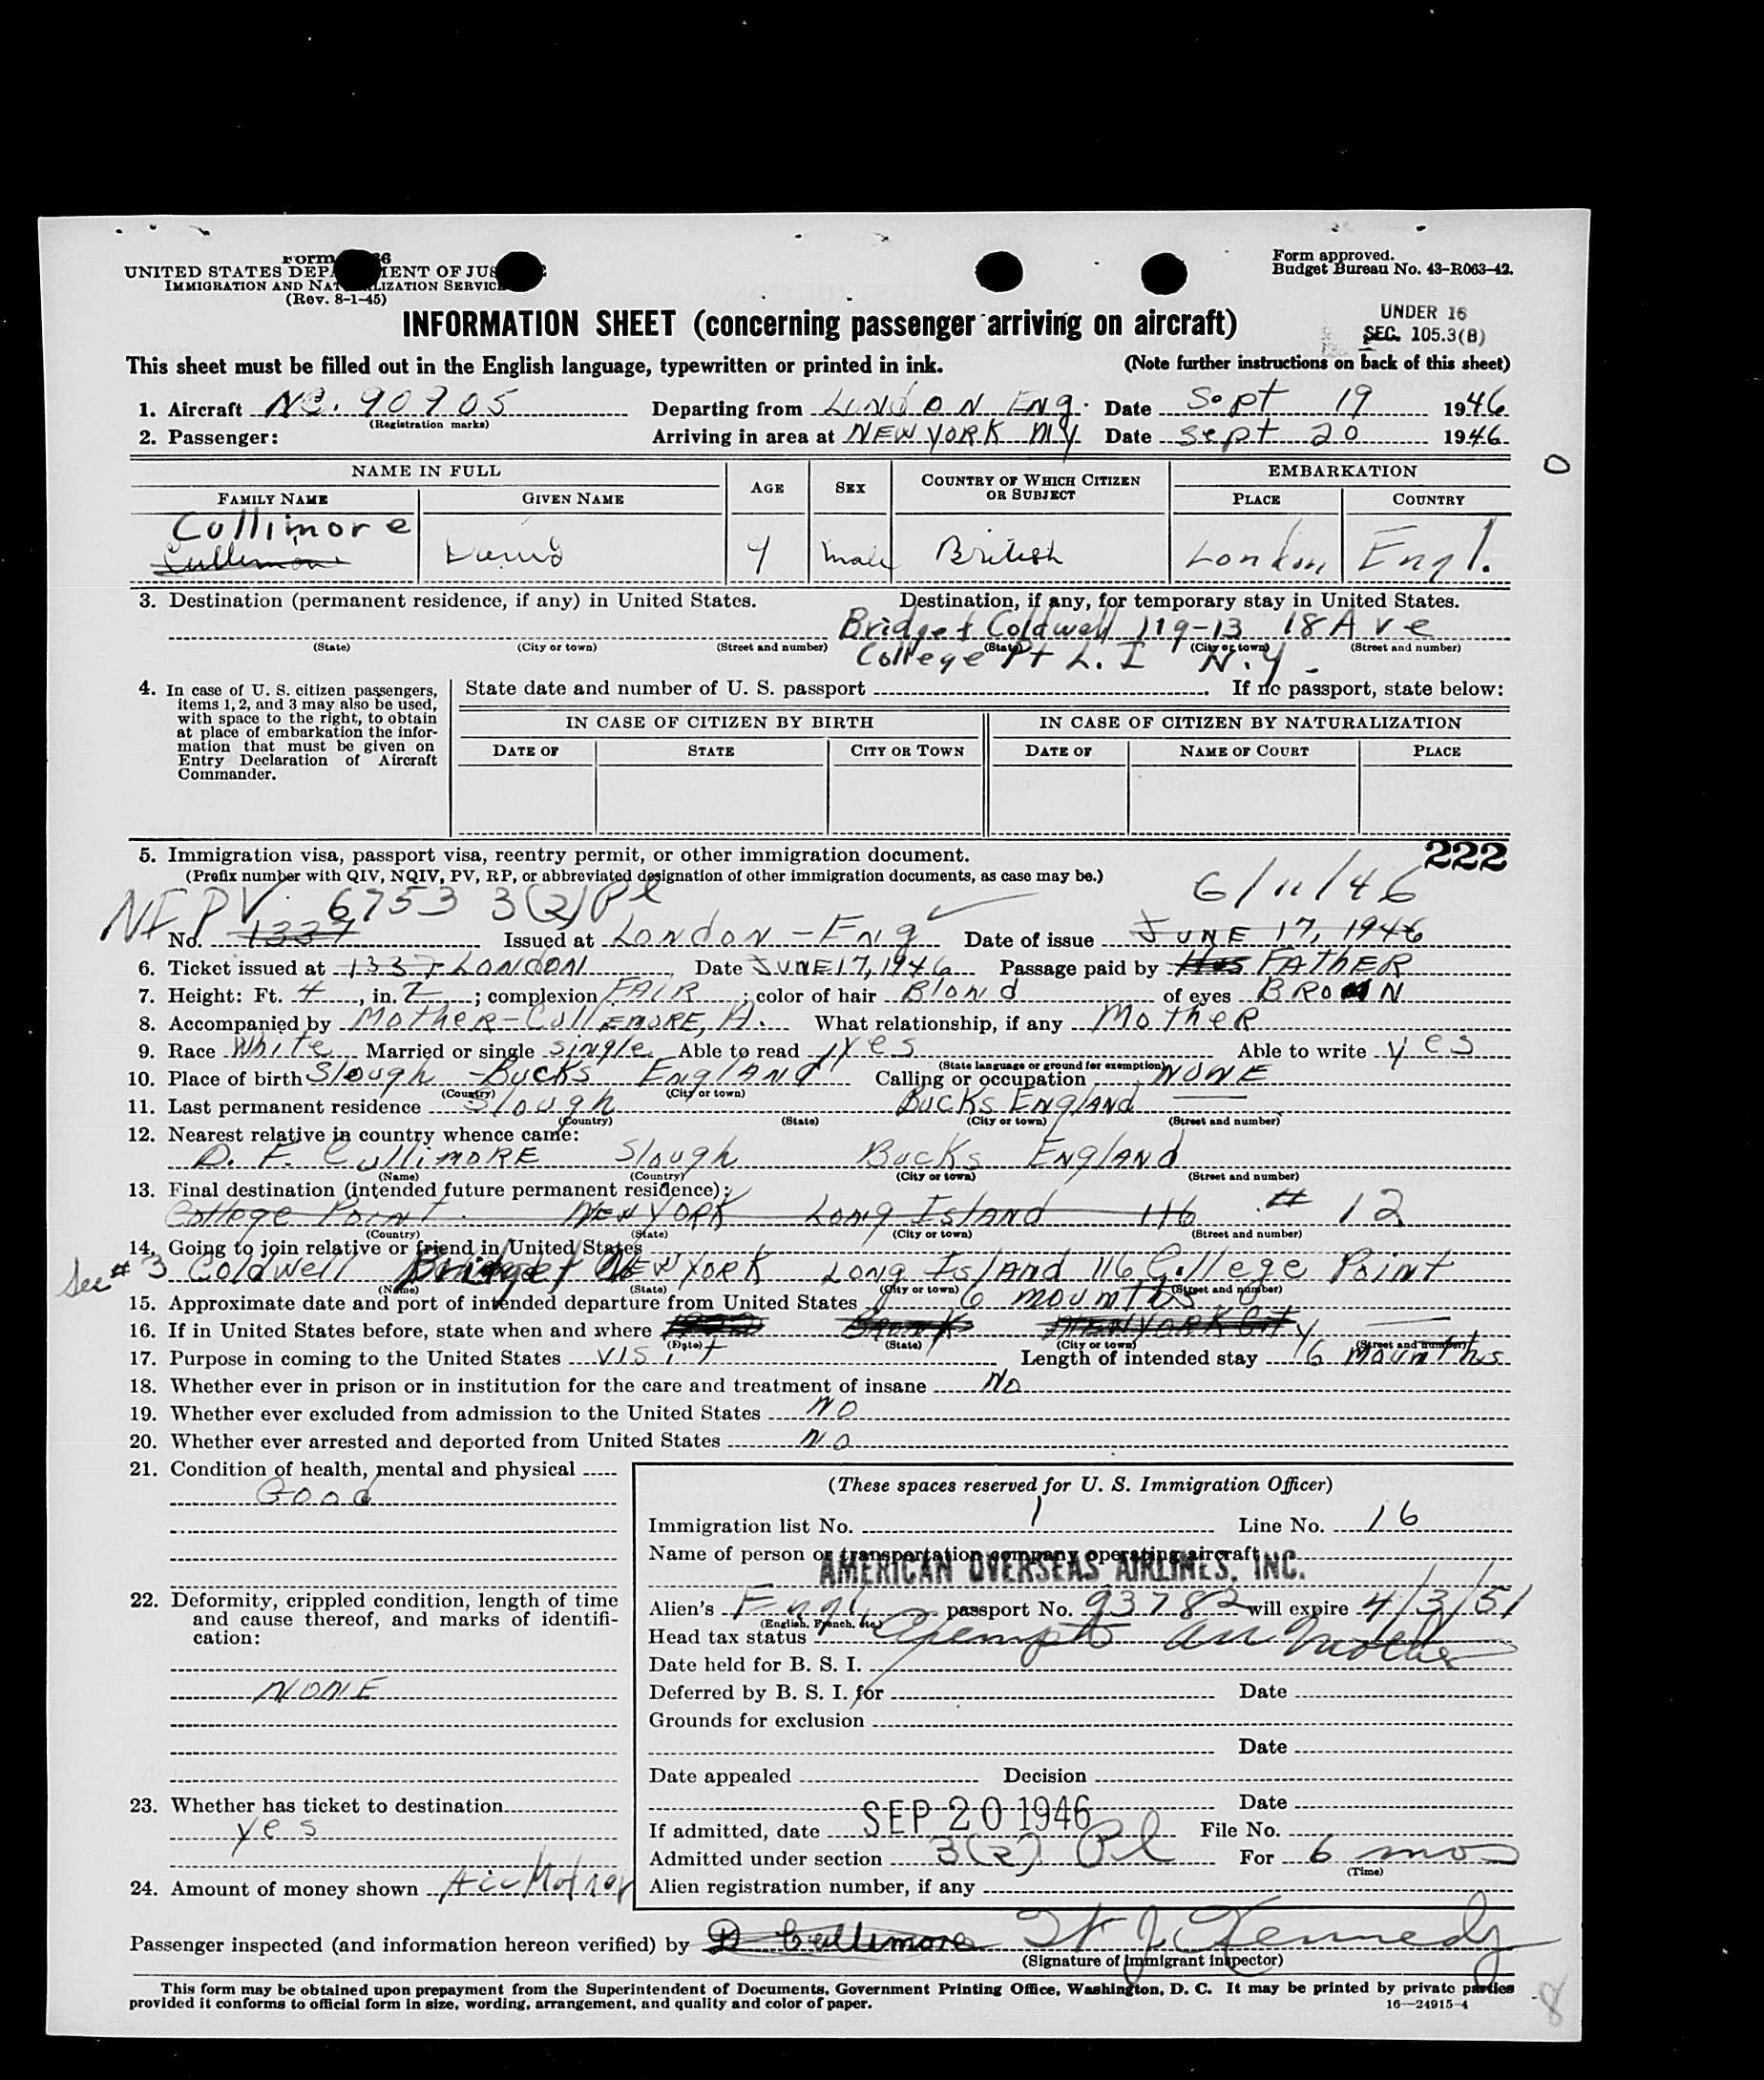 UNITED STATES DEPARTMENT OF JUSTICE
IMMIGRATION AND NATURALIZATION SERVICE
(Rev. 8-1-45)
Form approved.
Budget Bureau No. 43-R063-42.
INFORMATION SHEET (concerning passenger arriving on aircraft)
UNDER 16
SEC. 105.3(B)
This sheet must be filled out in the English language, typewritten or printed in ink. (Note further instructions on back of this sheet)
1. Aircraft NC. 90905 Departing from LONDON ENG. Date Sept 19 1946
(Registration marks)
2. Passenger: Arriving in area at NEW YORK NY Date Sept 20 1946
NAME IN FULL AGE SEX COUNTRY OF WHICH CITIZEN OR SUBJECT EMBARKATION
FAMILY NAME GIVEN NAME PLACE COUNTRY
Cullimore
male British London Engl.
3. Destination (permanent residence, if any) in United States. Destination, if any, for temporary stay in United States.
Bridget Coldwell 119-13 18 Ave
(State) (City or town) (Street and number) (State) (City or town) (Street and number)
College Pt L. I N.Y.
4. In case of U. S. citizen passengers, items 1, 2, and 3 may also be used, with space to the right, to obtain at place of embarkation the information that must be given on Entry Declaration of Aircraft Commander.
State date and number of U. S. passport . If no passport, state below:
IN CASE OF CITIZEN BY BIRTH IN CASE OF CITIZEN BY NATURALIZATION
DATE OF STATE CITY OR TOWN DATE OF NAME OF COURT PLACE
222
5. Immigration visa, passport visa, reentry permit, or other immigration document.
(Prefix number with QIV, NQIV, PV, RP, or abbreviated designation of other immigration documents, as case may be.)
6753 3(2) Pl 6/11/46
No. 1337 Issued at London - Eng Date of issue JUNE 17, 1946
6. Ticket issued at 1337 LONDON Date JUNE 17, 1946 Passage paid by FATHER
7. Height: Ft. 4, in. 2; complexion FAIR; color of hair Blond of eyes BROWN
8. Accompanied by MOTHER - CULLEMORE, A. What relationship, if any MOTHER
9. Race White Married or single single Able to read yes Able to write yes
(State language or ground for exemption)
10. Place of birth Slough - Bucks ENGLAND Calling or occupation NONE
(Country) (City or town)
11. Last permanent residence Slough Bucks ENGLAND
(Country) (State) (City or town) (Street and number)
12. Nearest relative in country whence came:
D. F. CulliMORE Slough Bucks ENGLAND
(Name) (Country) (City or town) (Street and number)
13. Final destination (intended future permanent residence):
College Point NEW YORK Long Island 116 # 12
(Country) (State) (City or town) (Street and number)
14. Going to join relative or friend in United States
See #3 Coldwell Bridget NEW YORK Long Island 116 College Point
(Name) (State) (City or town) (Street and number)
15. Approximate date and port of intended departure from United States 6 mounths
16. If in United States before, state when and where NEW YORK City
(Date) (State) (City or town) (Street and number)
17. Purpose in coming to the United States visit Length of intended stay 6 mounths
18. Whether ever in prison or in institution for the care and treatment of insane No
19. Whether ever excluded from admission to the United States NO
20. Whether ever arrested and deported from United States NO
21. Condition of health, mental and physical
Good
22. Deformity, crippled condition, length of time and cause thereof, and marks of identification:
NONE
23. Whether has ticket to destination
yes
24. Amount of money shown Acc Mother
(These spaces reserved for U. S. Immigration Officer)
Immigration list No. 1 Line No. 16
Name of person or transportation company operating aircraft
AMERICAN OVERSEAS AIRLINES, INC.
Alien's Engl. passport No. 93782 will expire 4/3/51
(English, French, etc.)
Head tax status Exempt acc Mother
Date held for B. S. I.
Deferred by B. S. I. for Date
Grounds for exclusion
Date
Date appealed Decision
Date
If admitted, date SEP 20 1946 File No.
Admitted under section 3(2) Pl For 6 mos
(Time)
Alien registration number, if any
Passenger inspected (and information hereon verified) by D Cullimore Kennedy
(Signature of immigrant inspector)
This form may be obtained upon prepayment from the Superintendent of Documents, Government Printing Office, Washington, D. C. It may be printed by private parties
provided it conforms to official form in size, wording, arrangement, and quality and color of paper. 16—24915-4
8